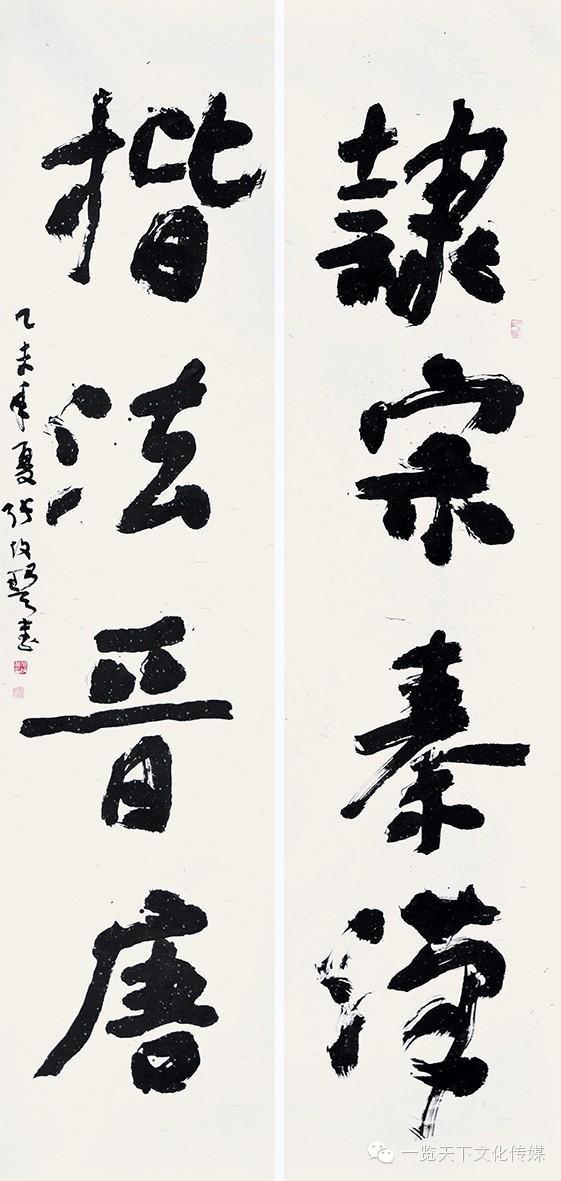 隸宗秦漢
楷法晉唐
乙未年夏张改琴书
一览天下文化传媒